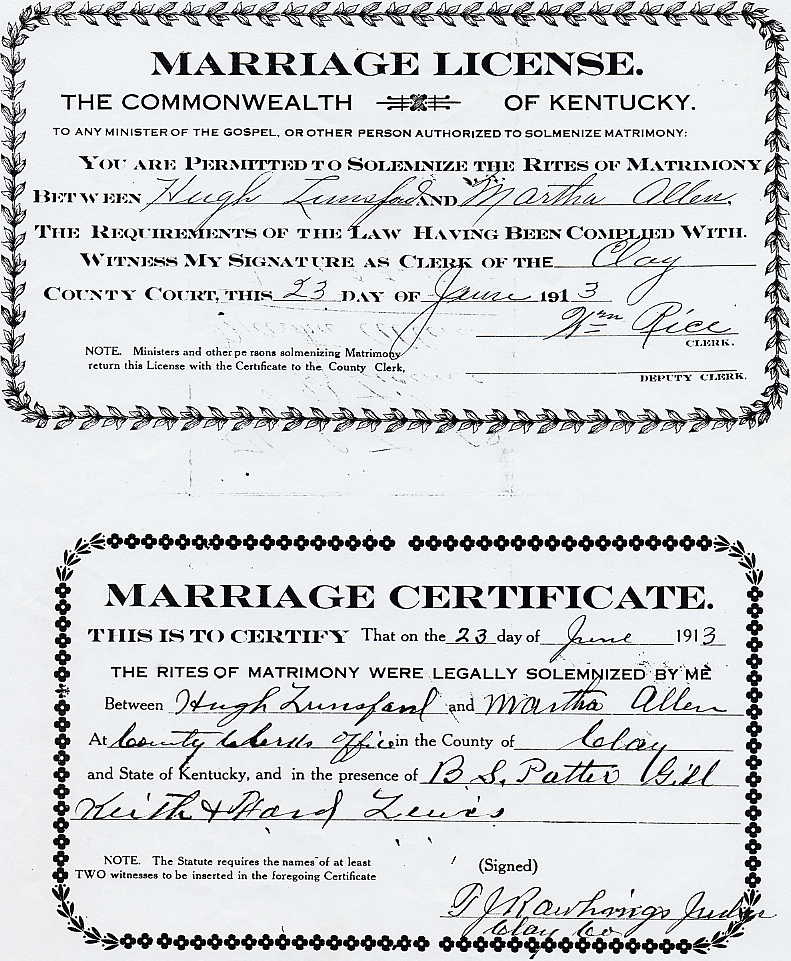 MARRIAGE LICENSE.
THE COMMONWEALTH OF KENTUCKY.
TO ANY MINISTER OF THE GOSPEL, OR OTHER PERSON AUTHORIZED TO SOLMENIZE MATRIMONY:
YOU ARE PERMITTED TO SOLEMNIZE THE RITES OF MATRIMONY
BETWEEN Hugh Lunsford AND Martha Allen.
THE REQUIREMENTS OF THE LAW HAVING BEEN COMPLIED WITH.
WITNESS MY SIGNATURE AS CLERK OF THE Clay
COUNTY COURT, THIS 23 DAY OF June 1913
Wm Rice
CLERK.
NOTE. Ministers and other persons solmenizing Matrimony
return this License with the Certificate to the County Clerk,
DEPUTY CLERK.
MARRIAGE CERTIFICATE.
THIS IS TO CERTIFY That on the 23 day of June 1913
THE RITES OF MATRIMONY WERE LEGALLY SOLEMNIZED BY ME
Between Hugh Lunsford and Martha Allen
At County Clerks Office in the County of Clay
and State of Kentucky, and in the presence of B S. Potter Gill
Keith & Lewis
NOTE. The Statute requires the names of at least
TWO witnesses to be inserted in the foregoing Certificate
(Signed)
T J Rawlings Judge
Clay Co